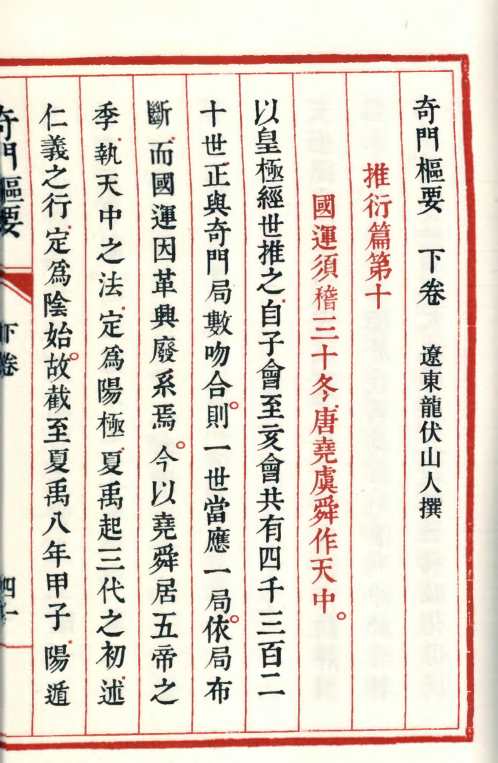 奇門樞要 下卷 遼東龍伏山人撰
推衍篇第十
國運須稽三十冬,唐堯虞舜作天中。
以皇極經世推之,自子會至亥會共有四千三百二
十世,正與奇門局數吻合。則一世當應一局。依局布
斷,而國運因革興廢系焉。今以堯舜居五帝之
季,執天中之法,定為陽極,夏禹起三代之初,述
仁義之行,定為陰始。故截至夏禹八年甲子,陽遁
奇門樞要 下卷 四一